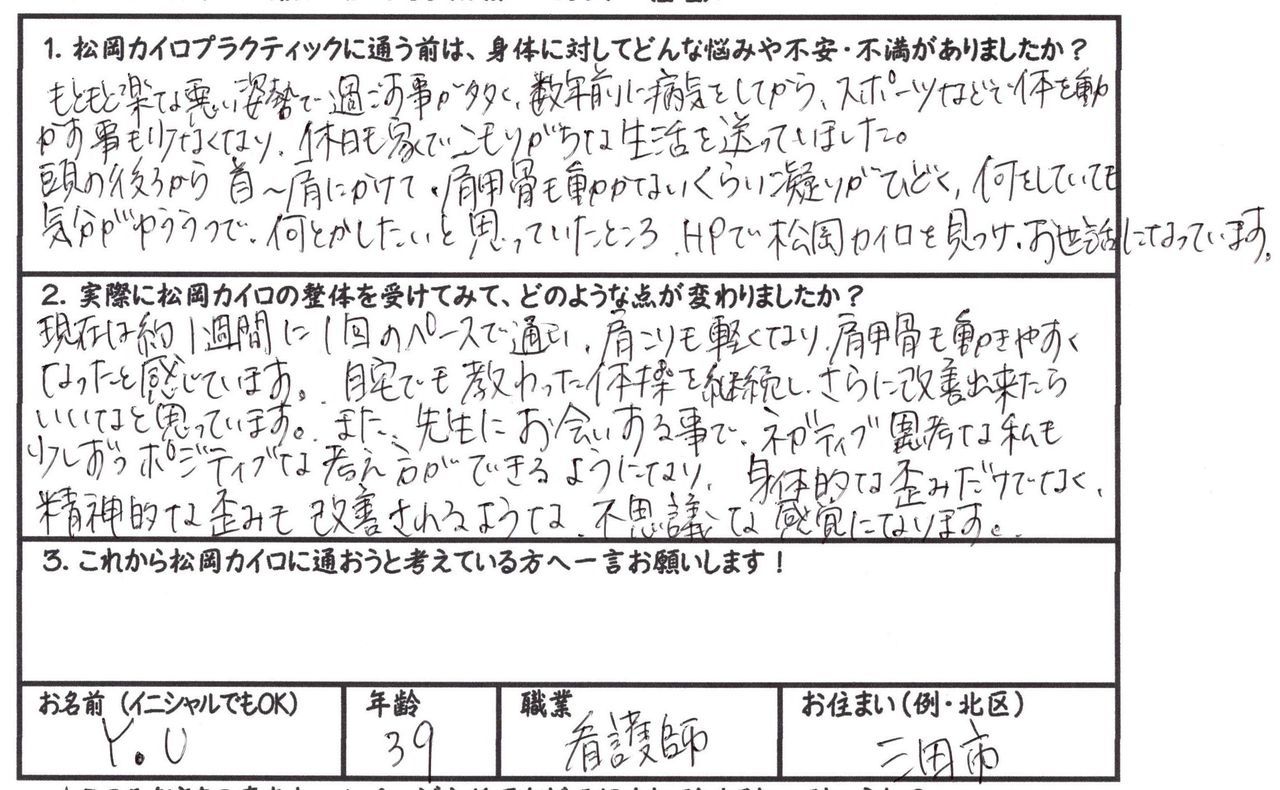 1. 松岡カイロプラクティックに通う前は、身体に対してどんな悩みや不安・不満がありましたか？
もともと楽な悪い姿勢で過ごす事が多く、数年前に病気をしてから、スポーツなどで体を動
かす事も少なくなり、休日も家でこもりがちな生活を送っていました。
頭の後ろから首～肩にかけて、肩甲骨も動かないくらい凝りがひどく、何をしていても
気分がゆううつで、何とかしたいと思っていたところ、HPで松岡カイロを見つけ、お世話になっています。
2. 実際に松岡カイロの整体を受けてみて、どのような点が変わりましたか？
現在は約1週間に1回のペースで通い、肩こりも軽くなり、肩甲骨も動きやすく
なったと感じています。自宅でも教わった体操を継続し、さらに改善出来たら
いいなと思っています。また、先生にお会いする事で、ネガティブ思考な私も
少しずつポジティブな考え方ができるようになり、身体的な歪みだけでなく、
精神的な歪みも改善されるような、不思議な感覚になります。
3. これから松岡カイロに通おうと考えている方へ一言お願いします！
お名前（イニシャルでもOK） 年齢 職業 お住まい（例・北区）
Y.U 39 看護師 三田市